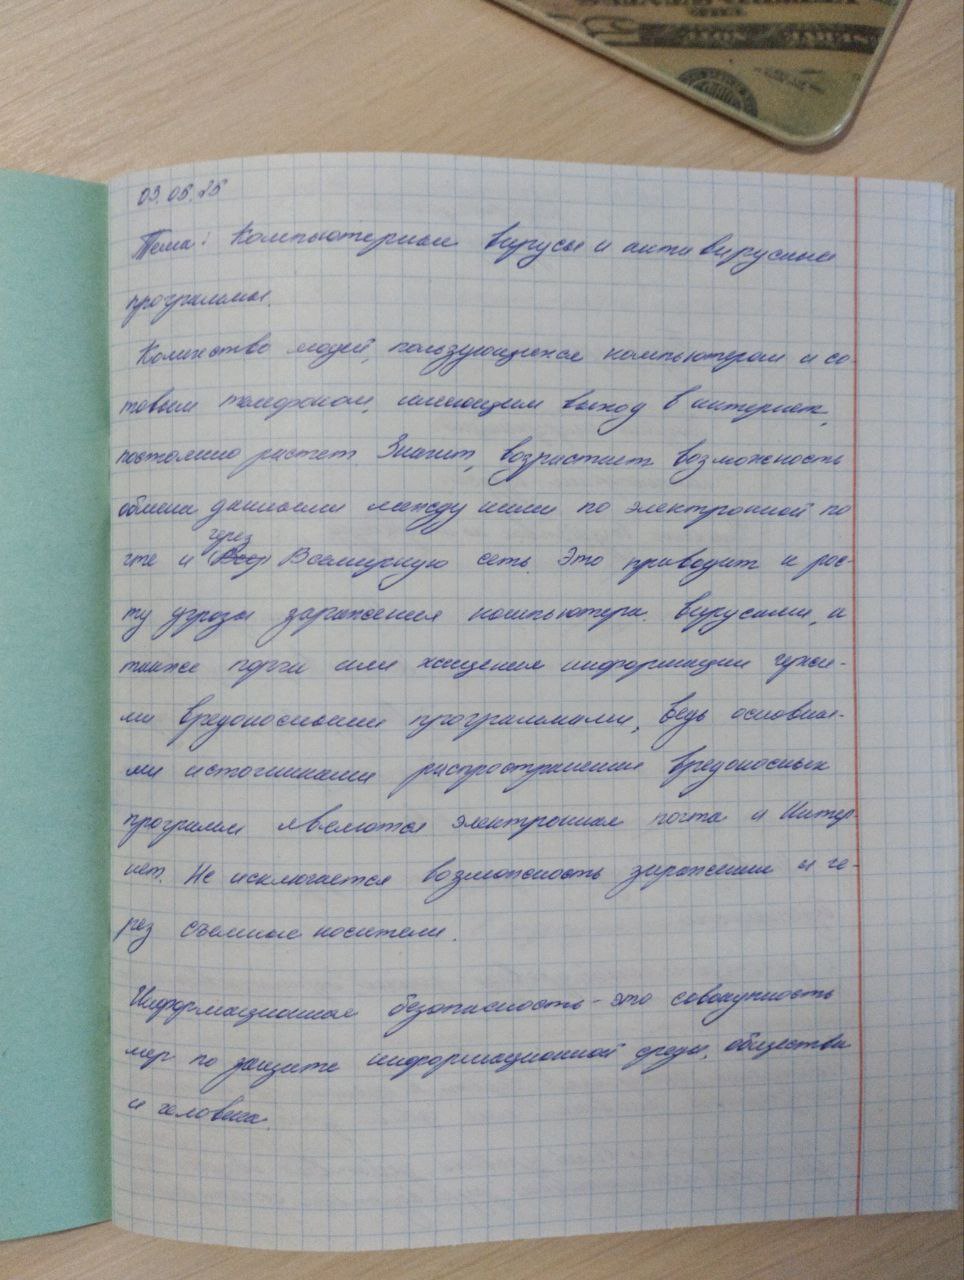 03.05.25
Тема: Компьютерные вирусы и антивирусные
программы.
Количество людей, пользующихся компьютером и со-
товым телефоном, имеющим выход в интернет,
постоянно растет. Значит, возрастает возможность
обмена данными между ними по электронной по
чте и через Всемирную сеть. Это приводит к рос-
ту угрозы заражения компьютера вирусами, а
также порчи или хищения информации чужи-
ми вредоносными программами, ведь основны-
ми источниками распространения вредоносных
программ являются электронная почта и Интер-
нет. Не исключается возможность заражения и че-
рез съемные носители.
Информационная безопасность - это совокупность
мер по защите информационной среды, общества
и человека.